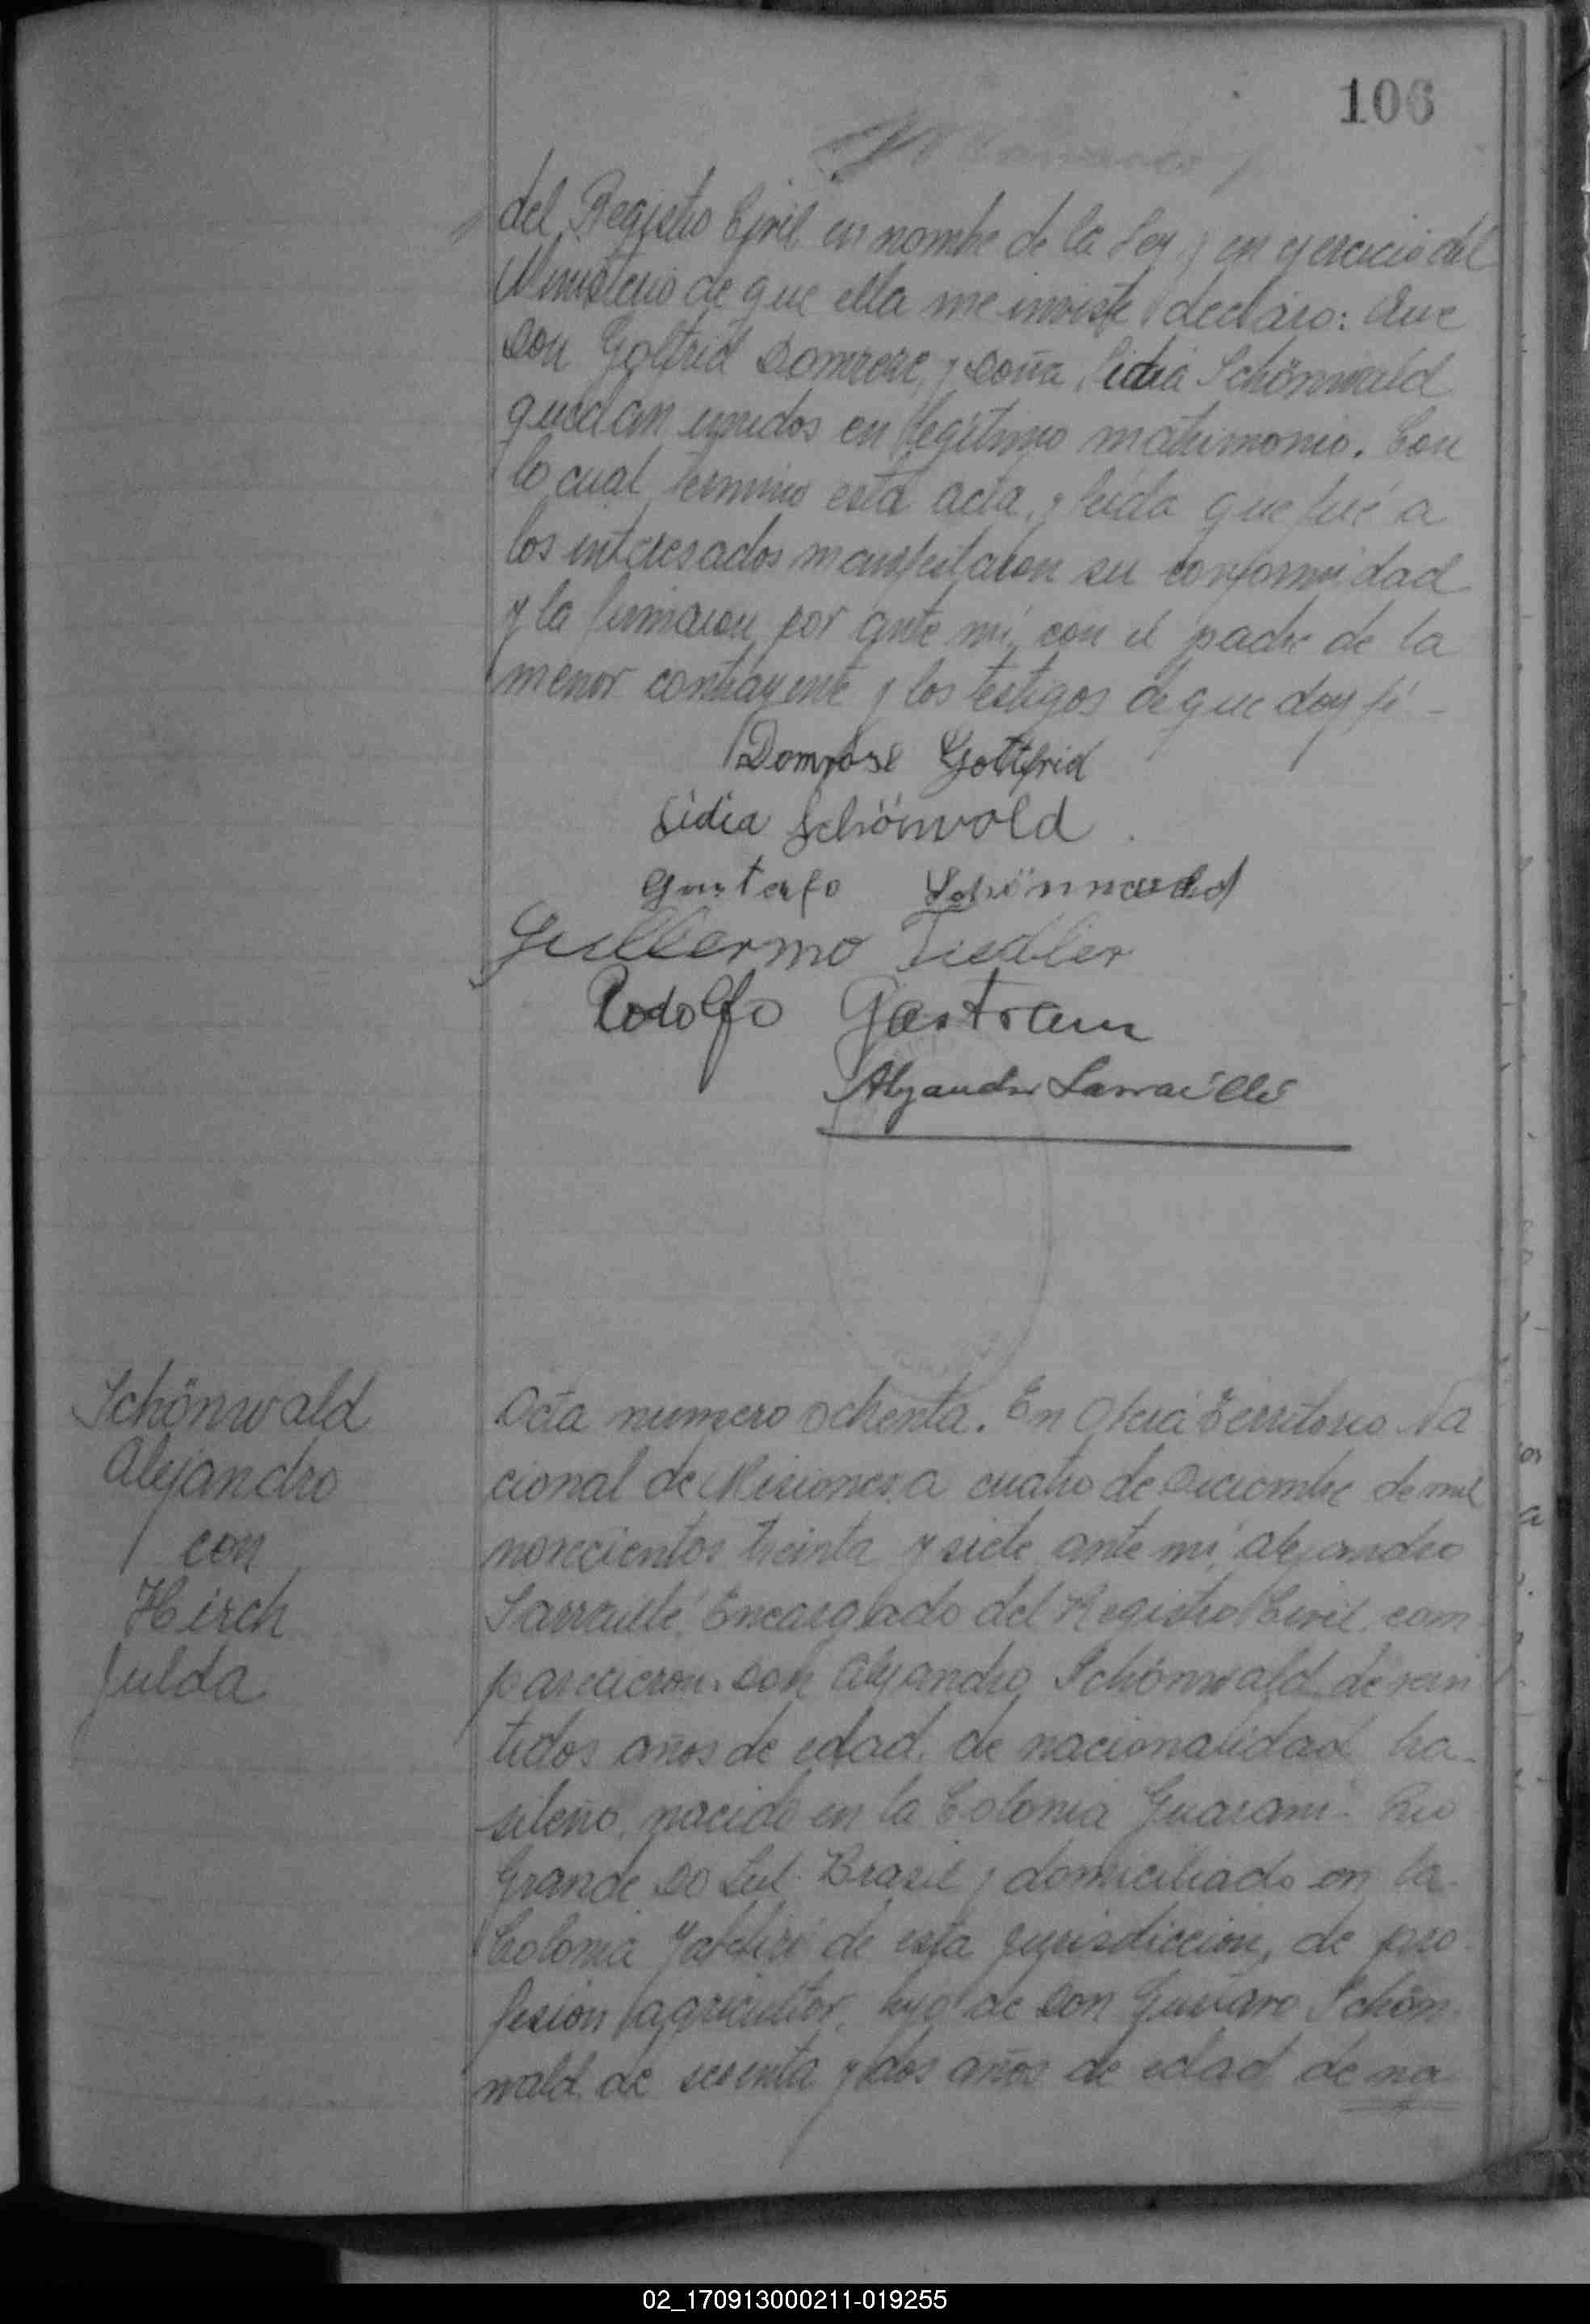 106
del Registro Civil en nombre de la Ley y en ejercicio del
Ministerio de que ella me inviste declaro: Que
Don Gotfrid Domrose y Doña Lidia Schönwald
quedan unidos en legítimo matrimonio. Con
lo cual termino esta acta, y leída que fué a
los interesados manifestaron su conformidad
y la firmaron por ante mí, con el padre de la
menor contrayente y los testigos de que doy fé -
Domrose Gottfrid
Lidia Schönwold
Gustafo Schönnwald
Guillermo Fiedler
Rodolfo Gastram
Alejandro Sarraillé
Schönwald
Alejandro
con
Hirch
Julda
Acta numero ochenta. En Oberá Territorio Na
cional de Misiones, a cuatro de Diciembre de mil
novecientos treinta y siete ante mí, Alejandro
Sarraillé, Encargado del Registro Civil, com
parecieron: Don Alejandro Schönwald de vein
tidos años de edad, de nacionalidad bra-
sileño, nacido en la Colonia Guarani - Rio
Grande Do Sul - Brasil y domiciliado en la
Colonia Yabebiri de esta jurisdiccion, de pro
fesion agricultor, hijo de Don Gustavo Schön
wald de sesenta y dos años de edad de na
02_170913000211-019255